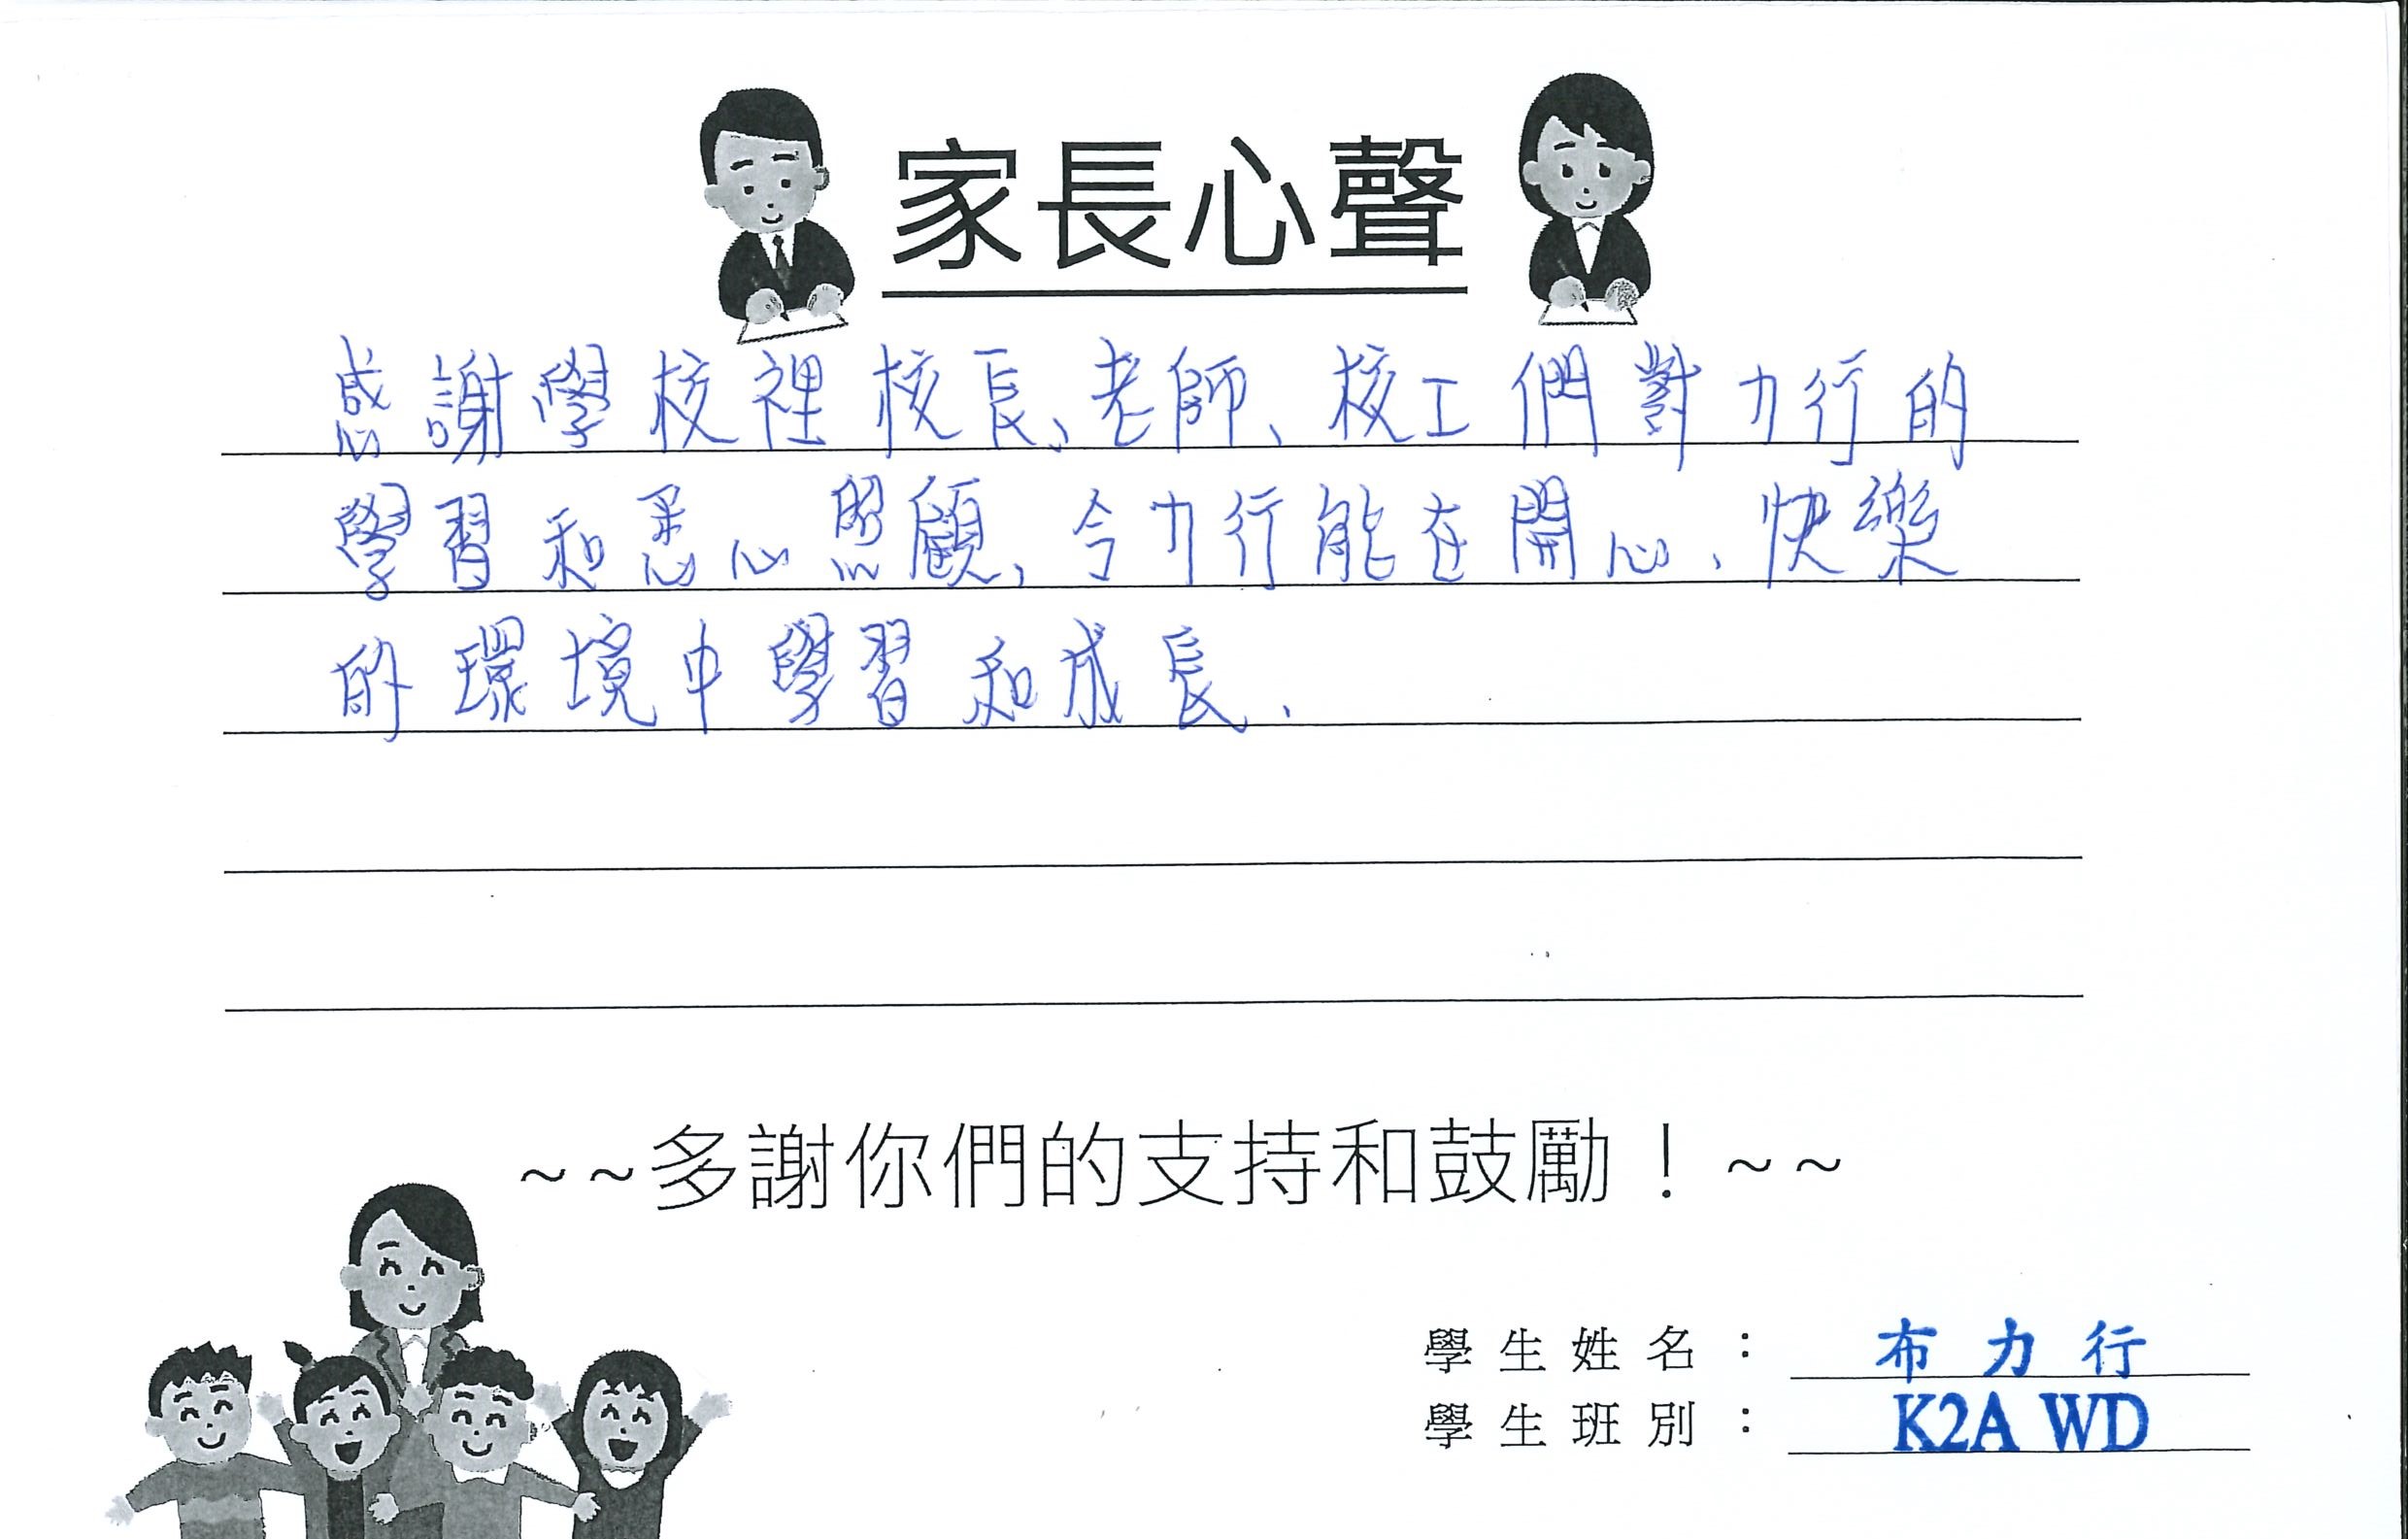 家長心聲
感謝學校裡校長、老師、校工們對力行的
學習和悉心照顧，令力行能在開心、快樂
的環境中學習和成長.
~~多謝你們的支持和鼓勵！~~
學生姓名： 布力行
學生班別： K2A WD